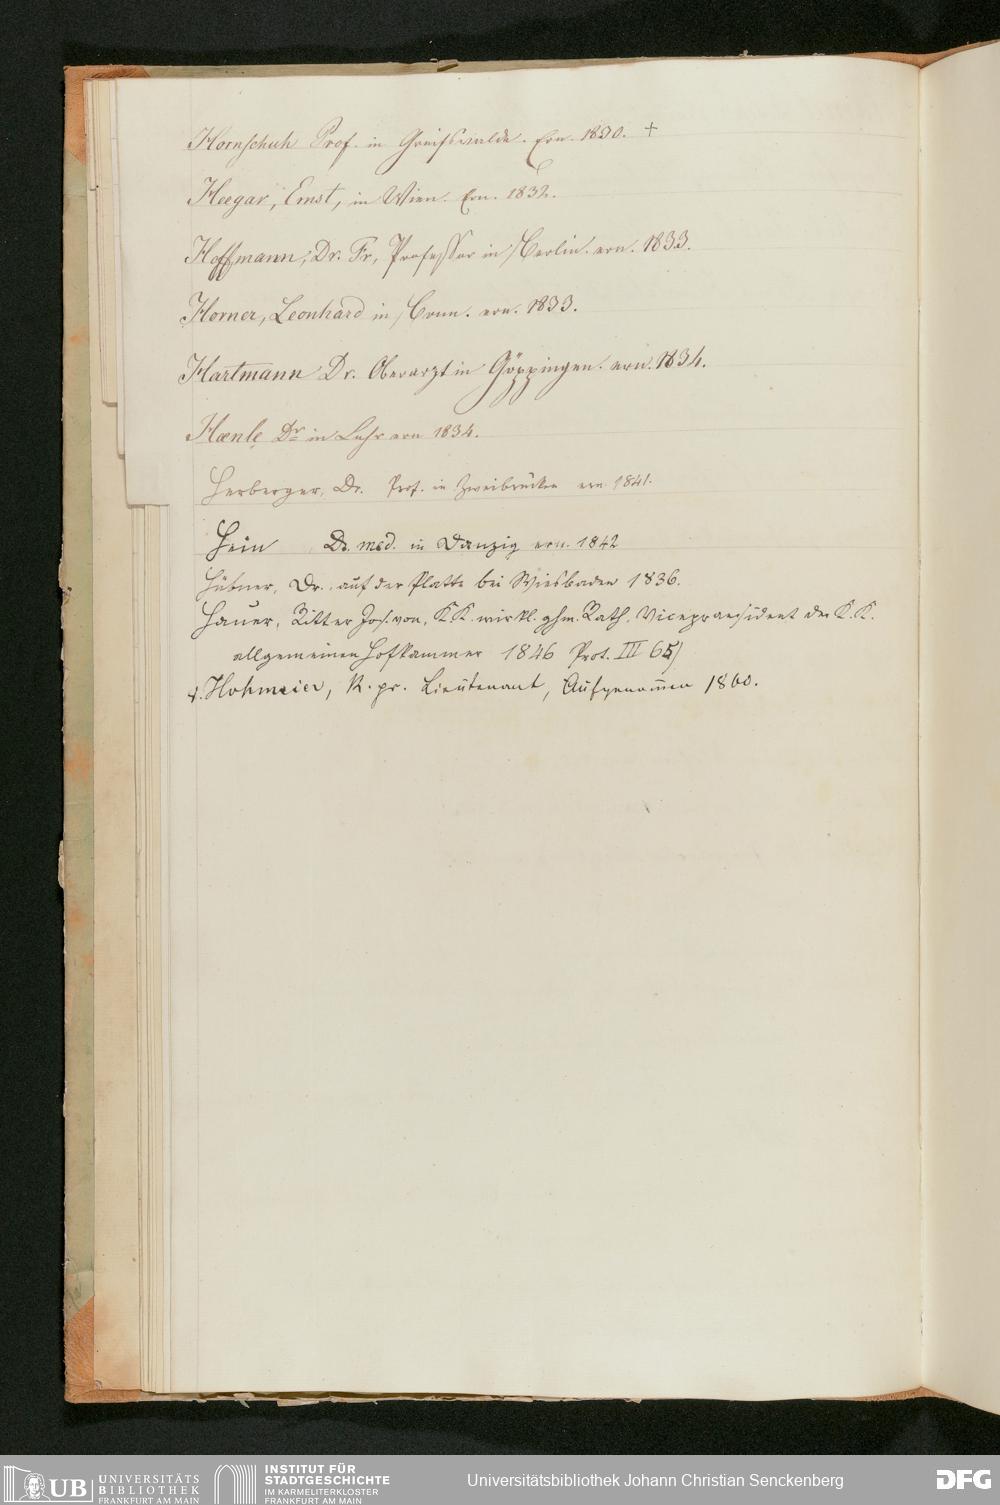 Hornschuh Prof. in Greifswalde. Ern. 1830. +
Heegar, Ernst, in Wien. Ern. 1832.
Hoffmann, Dr. Fr, Professor in Berlin. ern. 1833.
Horner, Leonhard in Bonn. ern. 1833.
Hartmann Dr. Oberarzt in Göppingen. ern. 1834.
Hænle Dr in Lahr ern 1834.
Herberger, Dr. Prof. in Zweibrücken ern 1841.
Hein Dr. med. in Danzig ern. 1842
Hübner, Dr. auf der Platte bei Wiesbaden 1836.
Hauer, Ritter Jos. von, K.K. wirkl. ghm. Rath. Vicepraesident der K.K.
allgemeinen Hofkammer 1846 Prot. III 65)
+. Hohmeier, K. pr. Lieutenant, Aufgenom̄en 1860.
UB UNIVERSITÄTS
BIBLIOTHEK
FRANKFURT AM MAIN
INSTITUT FÜR
STADTGESCHICHTE
IM KARMELITERKLOSTER
FRANKFURT AM MAIN
Universitätsbibliothek Johann Christian Senckenberg
DFG